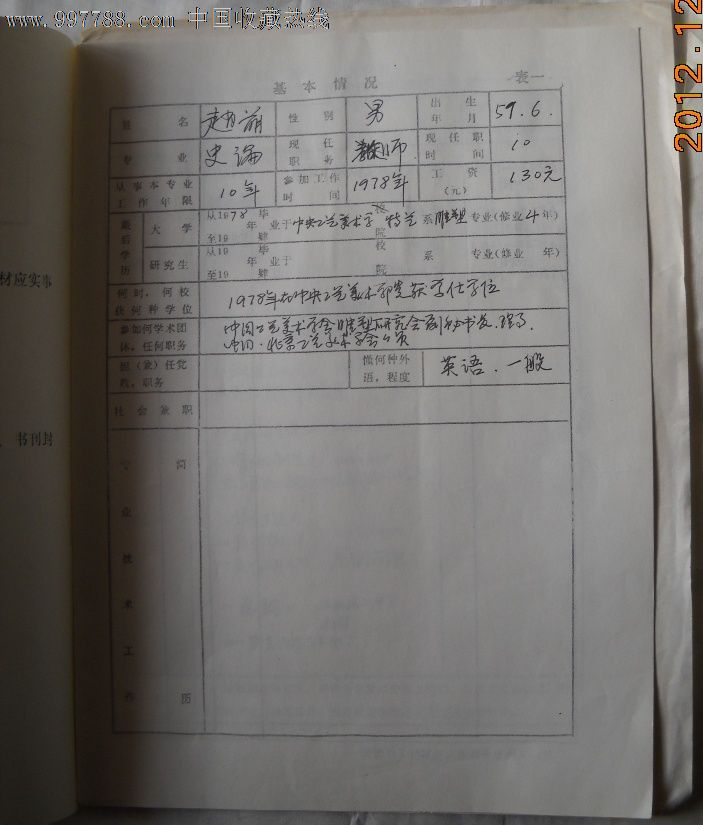 www.997788.com 中国收藏热线
2012.12
基本情况 表一
姓名 赵萌 性别 男 出生年月 59.6.
专业 史论 现任职务 教师 现任职时间 10
从事本专业工作年限 10年 参加工作时间 1978年 工资(元) 130元
最后学历 大学 从1978年毕业于中央工艺美术学院 特艺系 雕塑专业(修业4年)
至19 肄
研究生 从19 年毕业于 校 系 专业(修业 年)
至19 肄 院
何时,何校获何种学位 1978年在中央工艺美术学院获学位
参加何学术团体,任何职务 中国工艺美术学会雕塑研究会副秘书长、理事
中国·北京工艺美术学会会员
担(兼)任党政,职务 懂何种外语,程度 英语.一般
社会兼职
专业技术工作简历
材应实事
书刊封